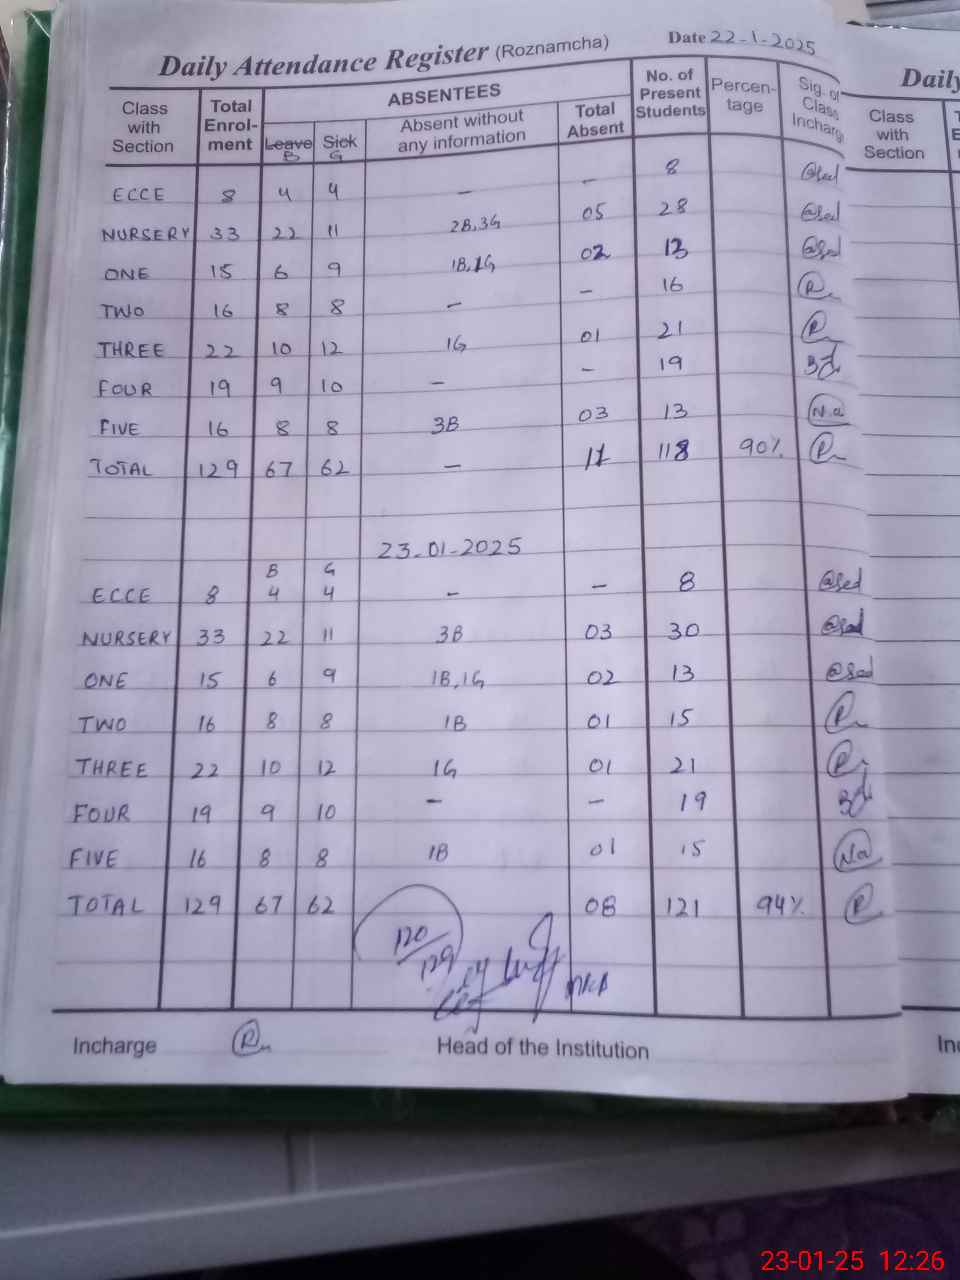 Daily Attendance Register (Roznamcha) Date 22-1-2025
Class with Section Total Enrol-ment ABSENTEES Leave B Sick G Absent without any information Total Absent No. of Present Students Percen-tage Sig. of Class Incharg
ECCE 8 4 4 - - 8
NURSERY 33 22 11 2B,3G 05 28
ONE 15 6 9 1B,1G 02 13
TWO 16 8 8 - - 16
THREE 22 10 12 1G 01 21
FOUR 19 9 10 - - 19
FIVE 16 8 8 3B 03 13
TOTAL 129 67 62 - 11 118 90%
23-01-2025
B G
ECCE 8 4 4 - - 8
NURSERY 33 22 11 3B 03 30
ONE 15 6 9 1B,1G 02 13
TWO 16 8 8 1B 01 15
THREE 22 10 12 1G 01 21
FOUR 19 9 10 - - 19
FIVE 16 8 8 1B 01 15
TOTAL 129 67 62 08 121 94%
120/129
Incharge Head of the Institution
Daily
Class with Section
In
23-01-25 12:26